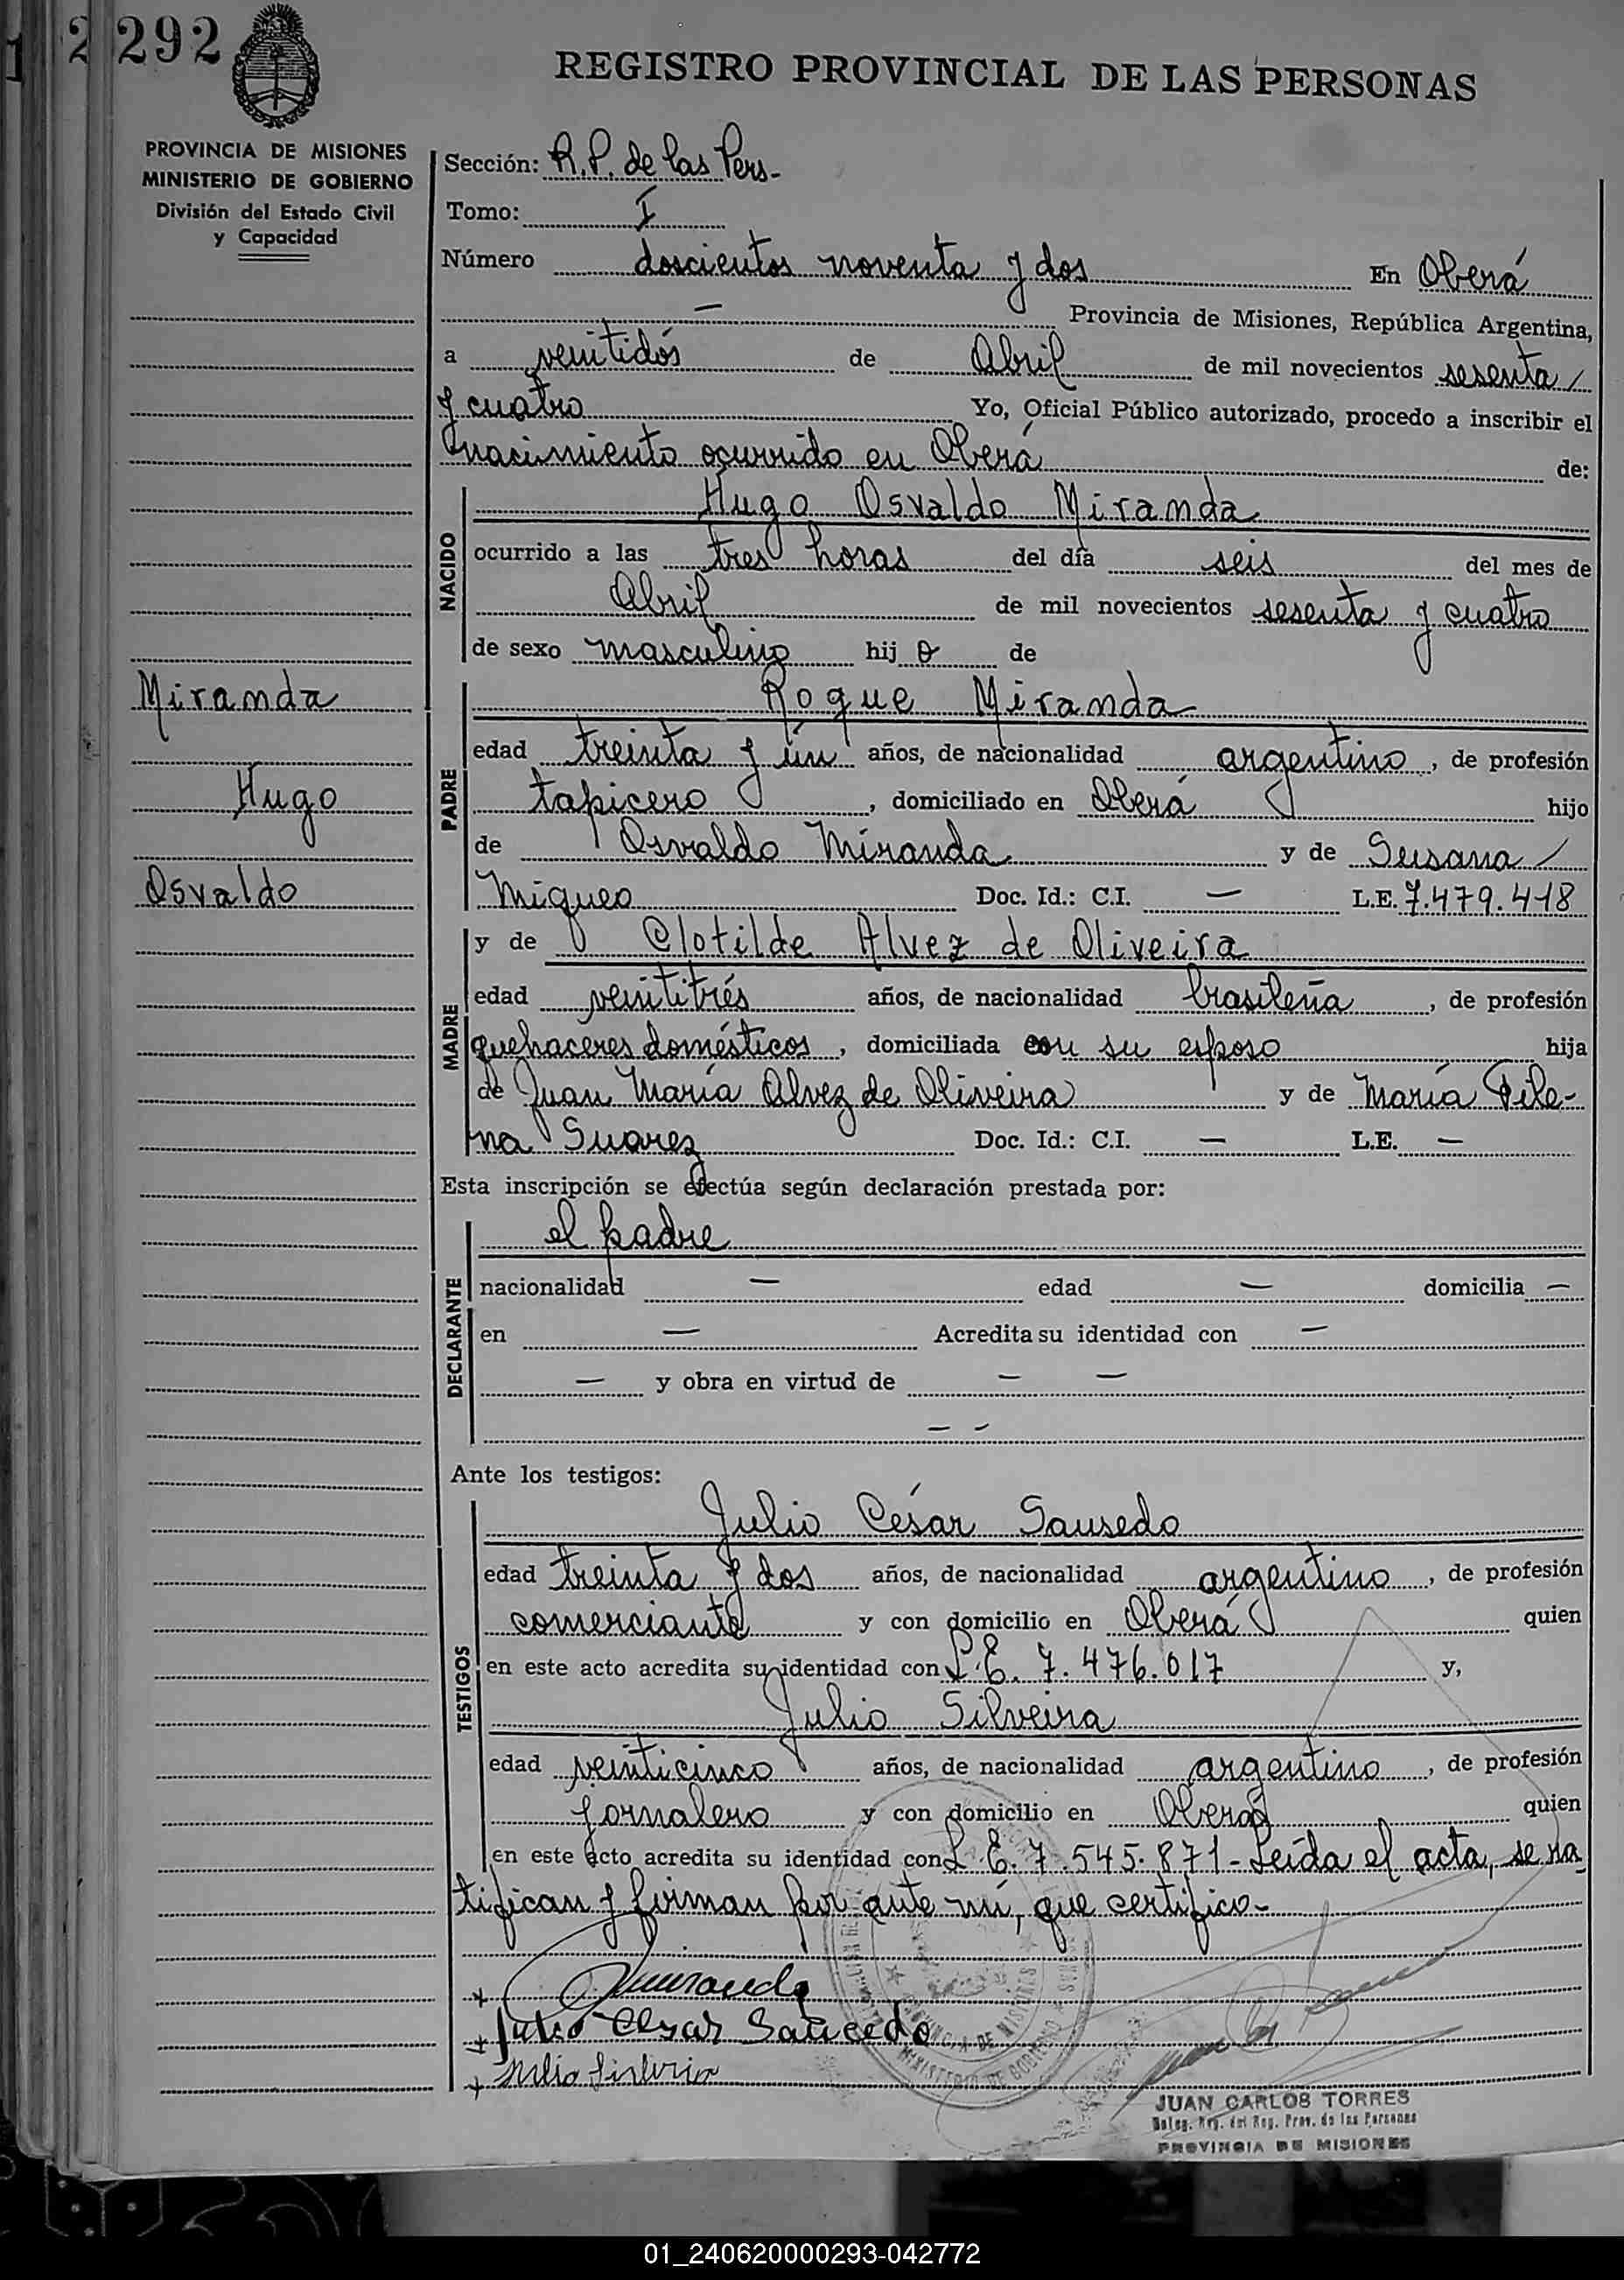 2 292
REGISTRO PROVINCIAL DE LAS PERSONAS
PROVINCIA DE MISIONES
MINISTERIO DE GOBIERNO
División del Estado Civil
y Capacidad
Sección: R.P. de las Pers-
Tomo: I
Número doscientos noventa y dos En Oberá
— Provincia de Misiones, República Argentina,
a veintidós de Abril de mil novecientos sesenta /
y cuatro Yo, Oficial Público autorizado, procedo a inscribir el
nacimiento ocurrido en Oberá de:
NACIDO
Hugo Osvaldo Miranda
ocurrido a las tres horas del día seis del mes de
Abril de mil novecientos sesenta y cuatro
de sexo masculino hij o de
Miranda
Hugo
Osvaldo
PADRE
Roque Miranda
edad treinta y un años, de nacionalidad argentino, de profesión
tapicero, domiciliado en Oberá hijo
de Osvaldo Miranda y de Susana /
Migueo Doc. Id.: C.I. — L.E. 7.479.418
MADRE
y de Clotilde Alvez de Oliveira
edad veintitrés años, de nacionalidad brasileña, de profesión
quehaceres domésticos, domiciliada con su esposo hija
de Juan María Alvez de Oliveira y de María
Suarez Doc. Id.: C.I. — L.E. —
Esta inscripción se efectúa según declaración prestada por:
DECLARANTE
el padre
nacionalidad — edad — domicilia —
en — Acredita su identidad con —
— y obra en virtud de — —
— —
Ante los testigos:
TESTIGOS
Julio César Sausedo
edad treinta y dos años, de nacionalidad argentino, de profesión
comerciante y con domicilio en Oberá quien
en este acto acredita su identidad con L.E. 7.476.017 y,
Julio Silveira
edad veinticinco años, de nacionalidad argentino, de profesión
jornalero y con domicilio en Oberá quien
en este acto acredita su identidad con L.E. 7.545.871- Leída el acta, se ra
tifican y firman por ante mí, que certifico-
Julio Cesar Saucedo
PROVINCIA DE MISIONES
MINISTERIO DE GOBIERNO
JUAN CARLOS TORRES
Reg. del Reg. Prov. de las Personas
PROVINCIA DE MISIONES
01_240620000293-042772